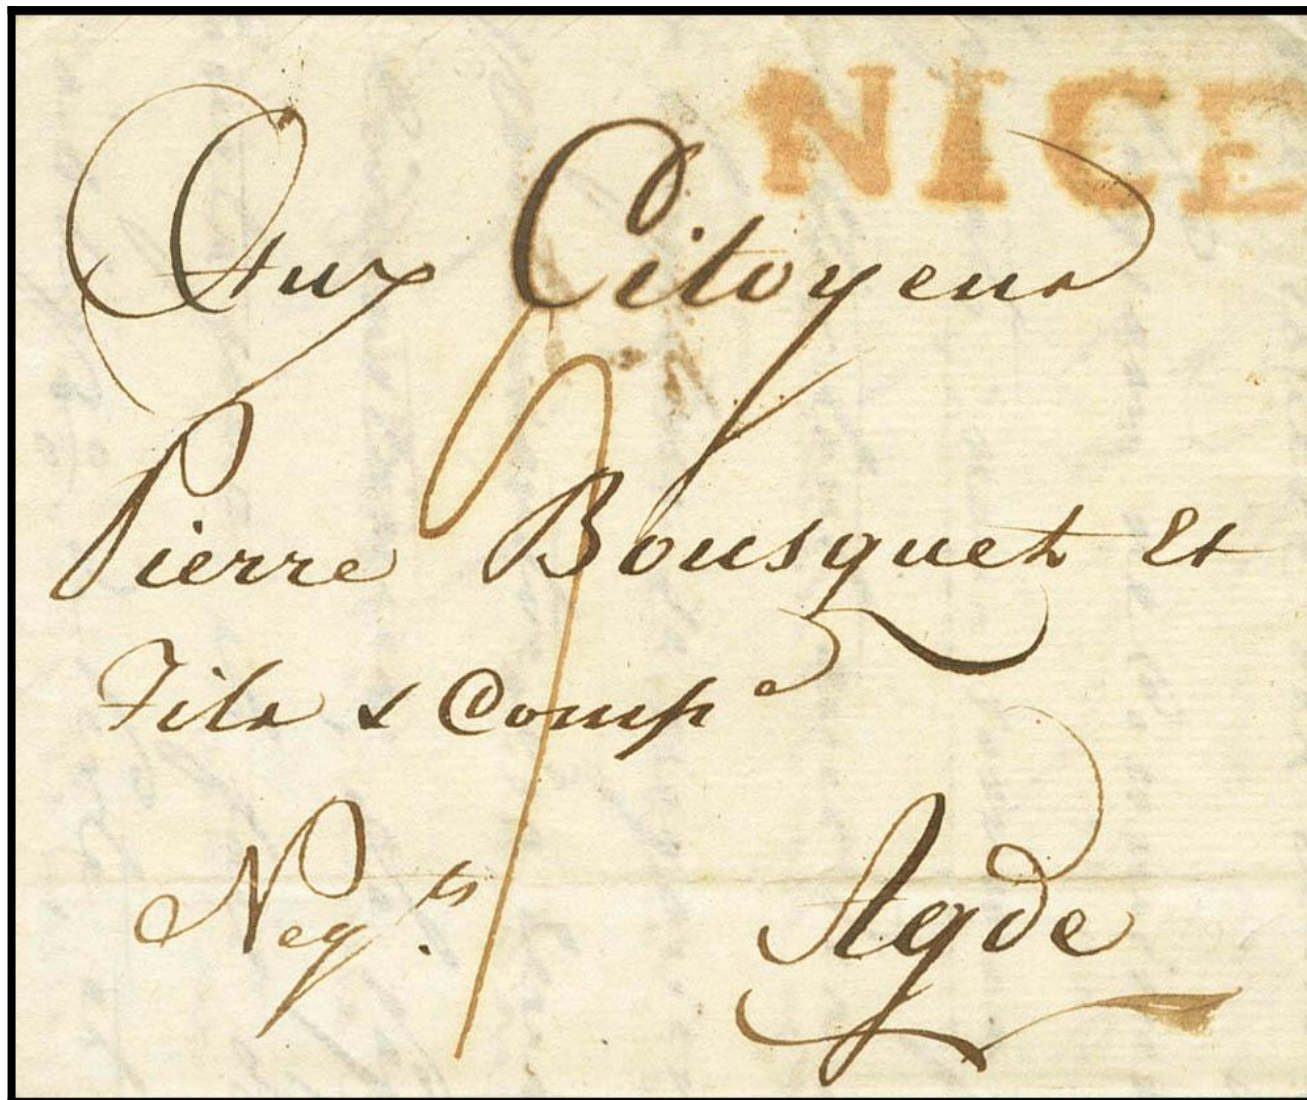 NICE
Aux Citoyens
Pierre Bousquet et
Fils & Compe
Negts.
Agde